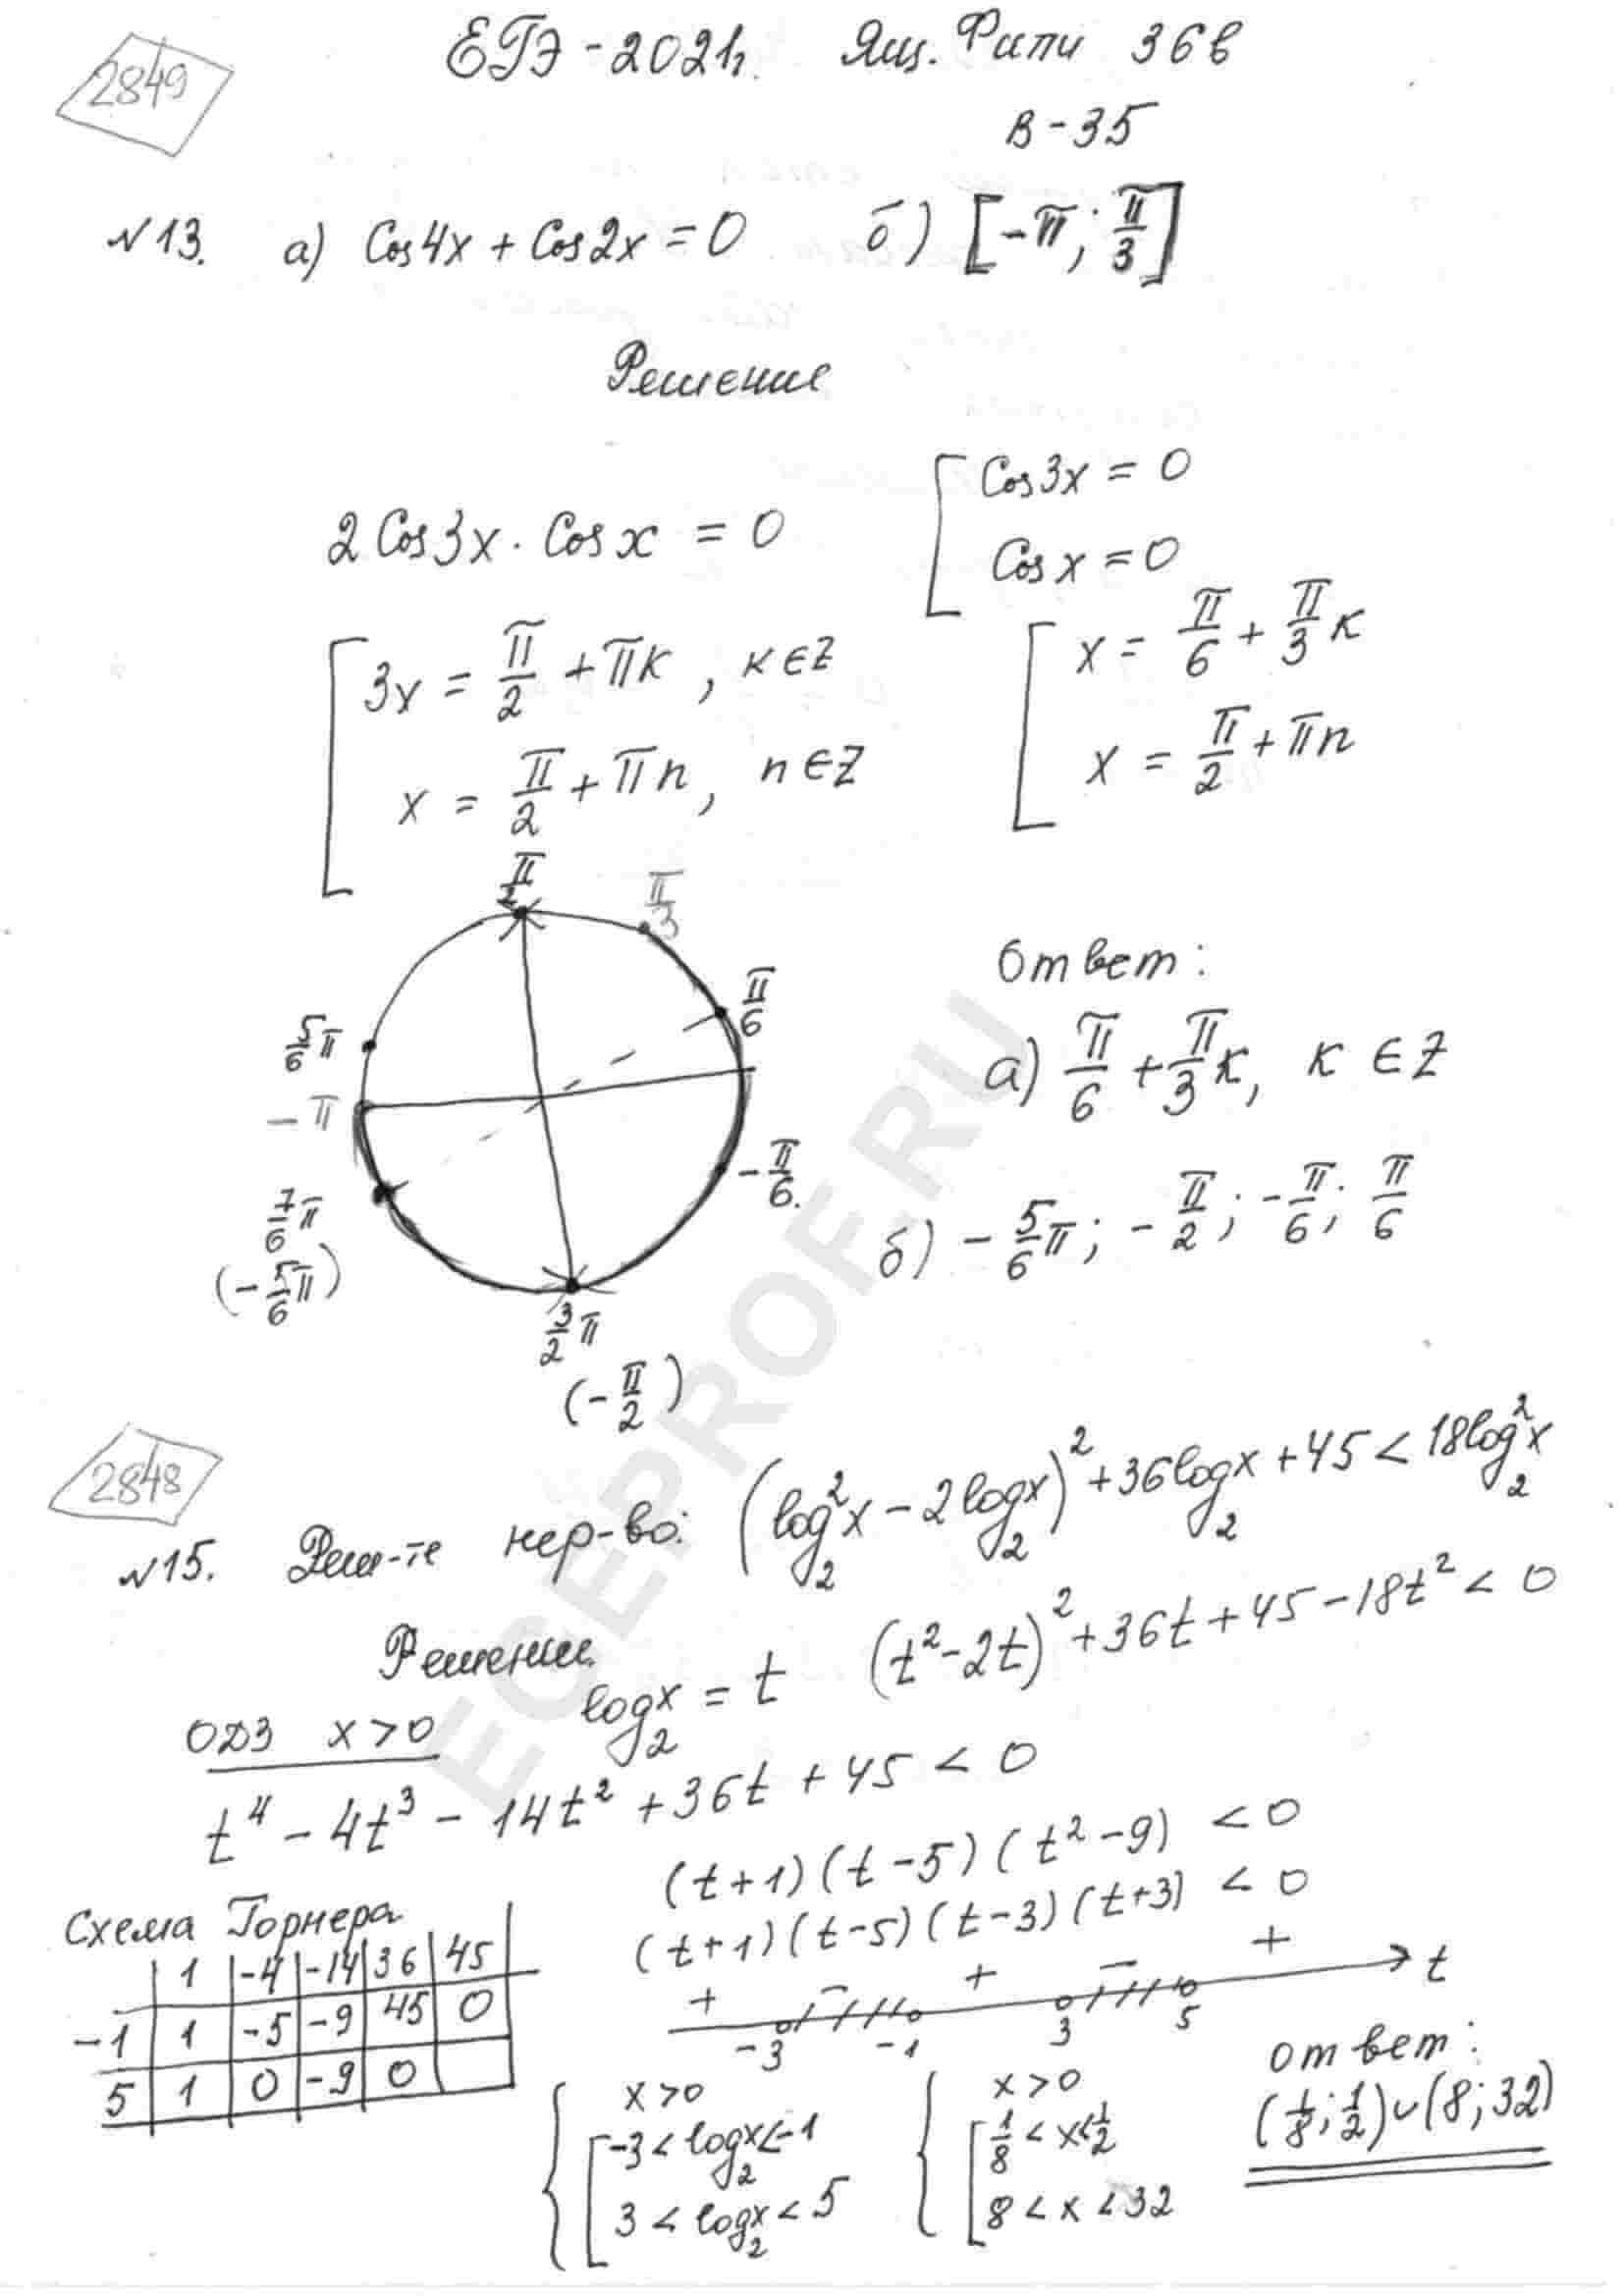 2849
ЕГЭ-2021г. Ящ. Фипи 36в
в-35
№13. а) Cos4x + Cos2x = 0 б) [-π; π/3]
Решение
2Cos3x · Cosx = 0
[ Cos3x = 0
Cosx = 0
[ 3x = π/2 + πk, k∈Z
x = π/2 + πn, n∈Z
[ x = π/6 + π/3 k
x = π/2 + πn
π/2
π/3
π/6
5/6 π
-π
-π/6.
7/6 π
(-5/6 π)
3/2 π
(-π/2)
Ответ:
а) π/6 + π/3 k, k ∈ Z
б) -5/6 π; -π/2; -π/6; π/6
EGEPROF.RU
2848
№15. Реш-те нер-во: (log₂²x - 2log₂x)² + 36log₂x + 45 < 18log₂²x
Решение
log₂x = t (t² - 2t)² + 36t + 45 - 18t² < 0
ОДЗ x > 0
t⁴ - 4t³ - 14t² + 36t + 45 < 0
(t+1)(t-5)(t²-9) < 0
(t+1)(t-5)(t-3)(t+3) < 0
Схема Горнера
1 -4 -14 36 45
-1 1 -5 -9 45 0
5 1 0 -9 0
+ - + - + t
-3 -1 3 5
{ x > 0
[ -3 < log₂x < -1
3 < log₂x < 5
{ x > 0
[ 1/8 < x < 1/2
8 < x < 32
Ответ:
(1/8; 1/2) ∪ (8; 32)